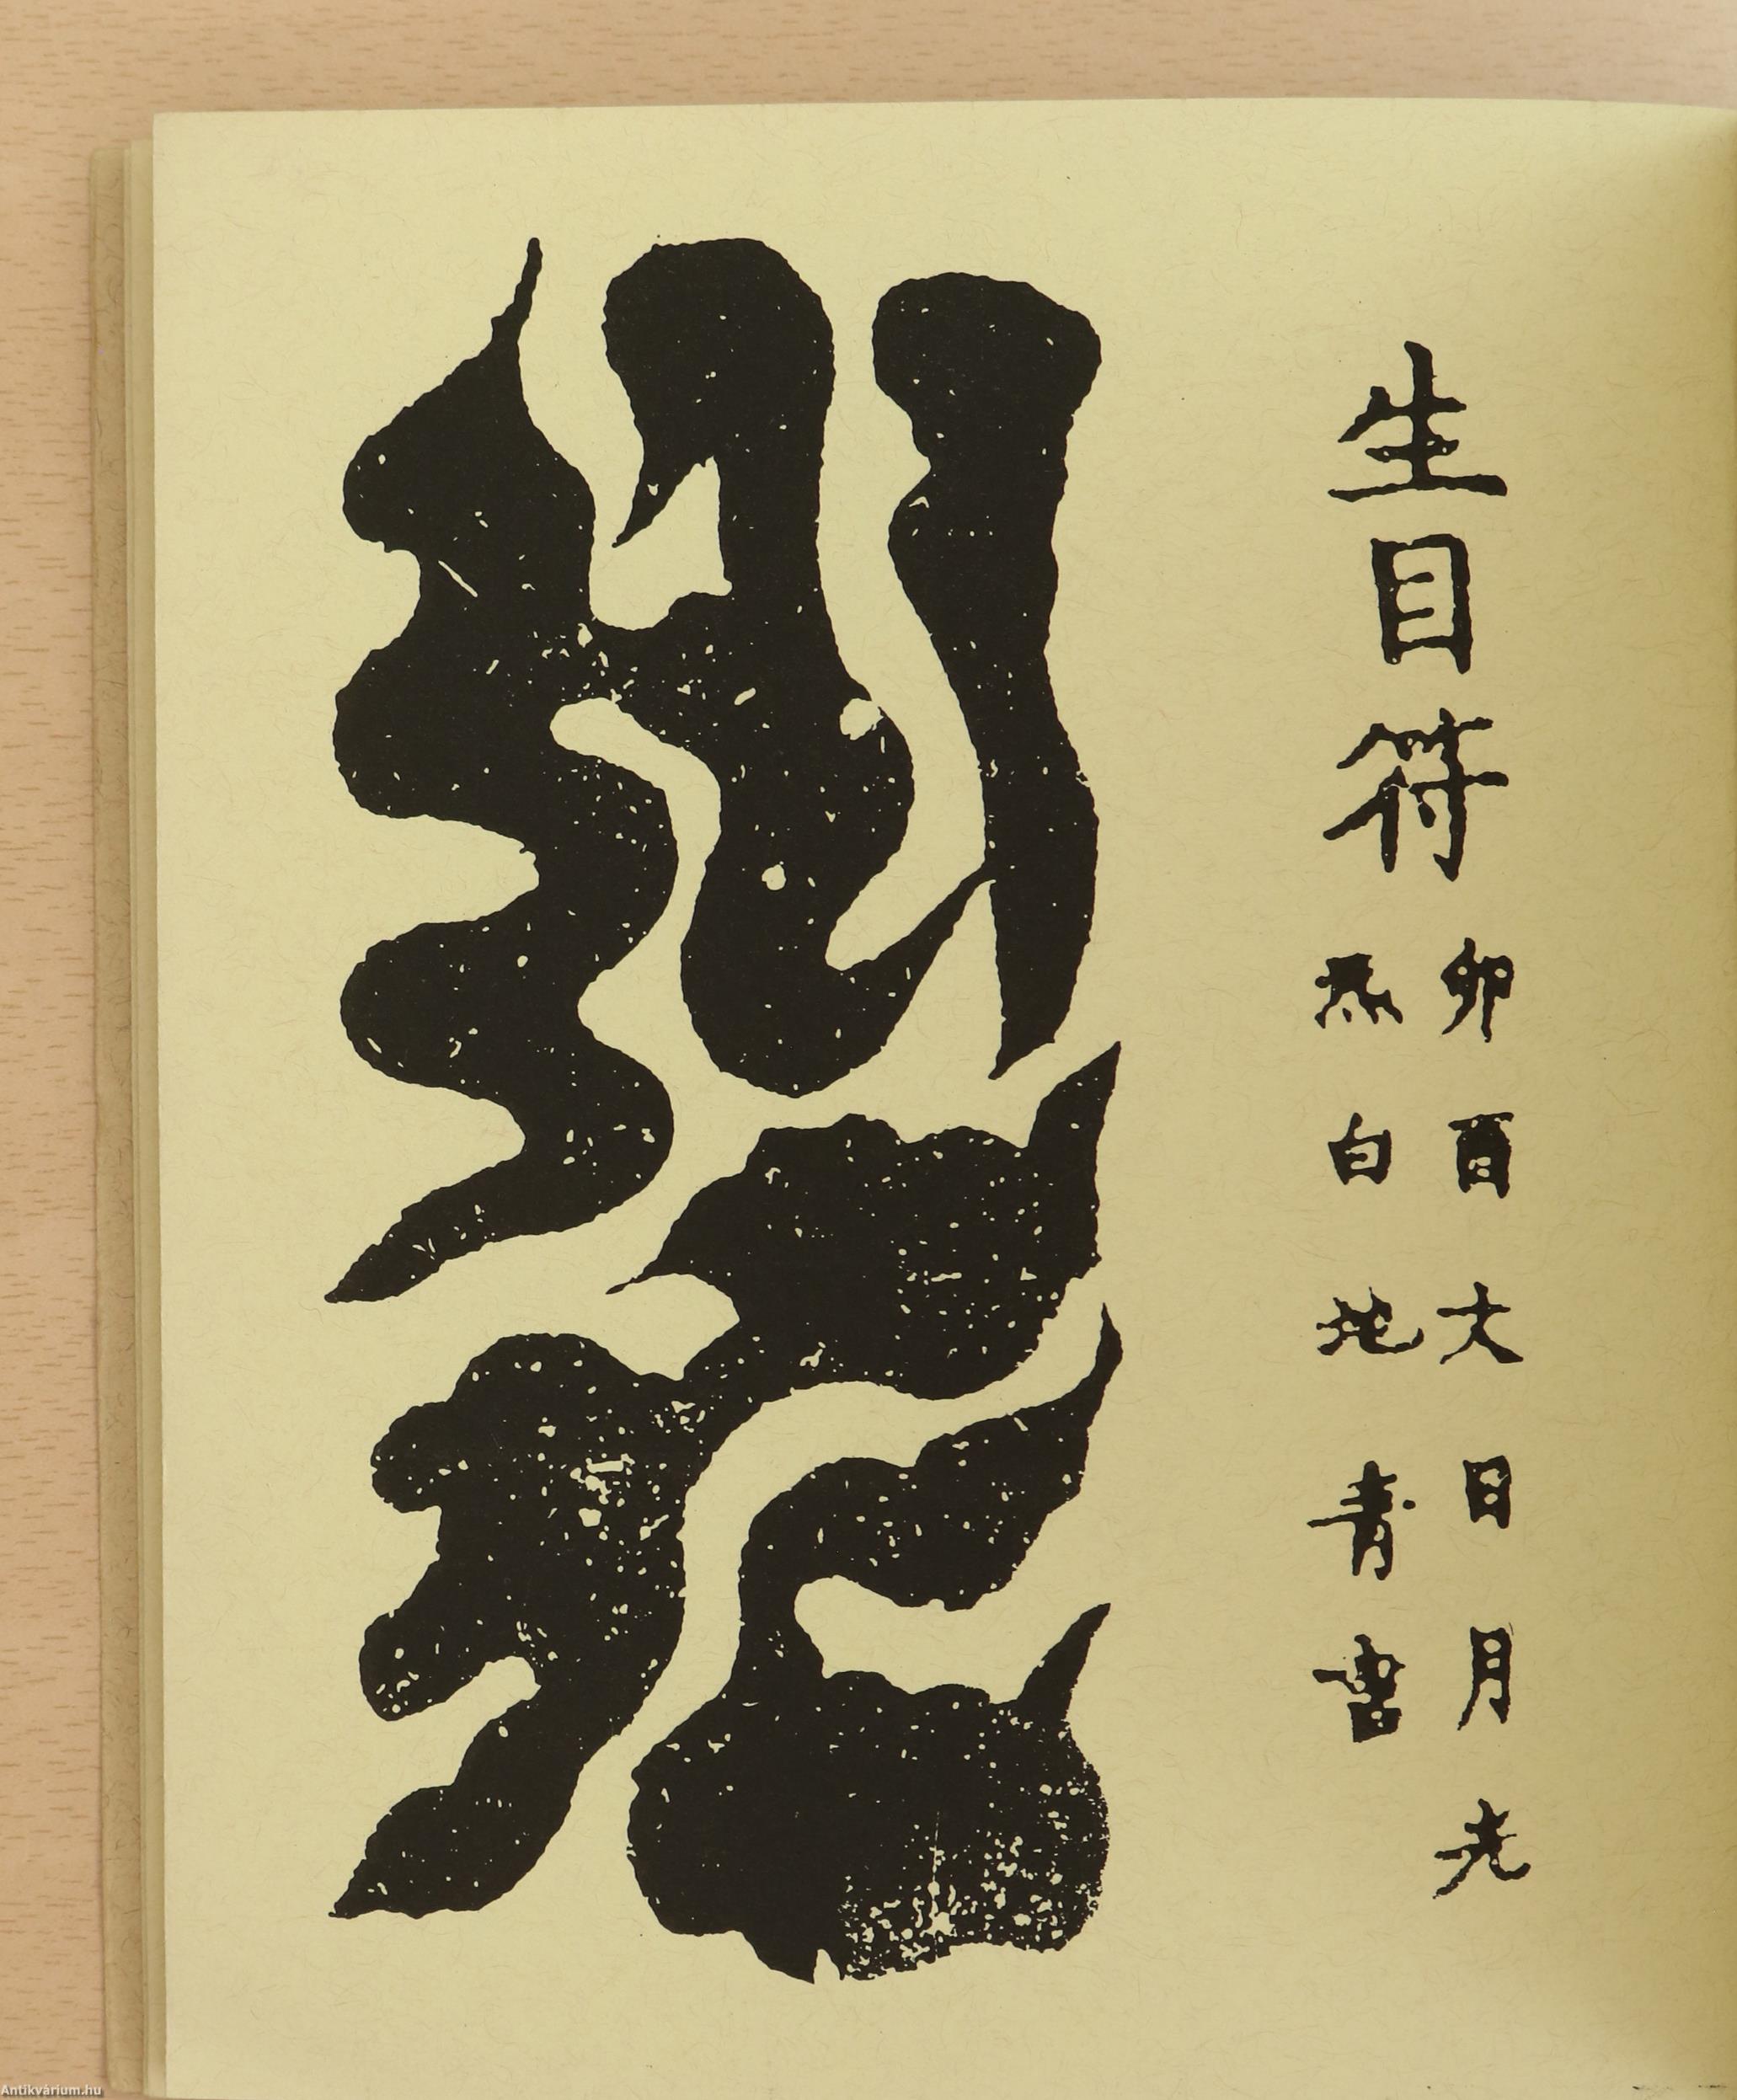 生目符
卯酉大日月光
炁白地青書
Antikvárium.hu